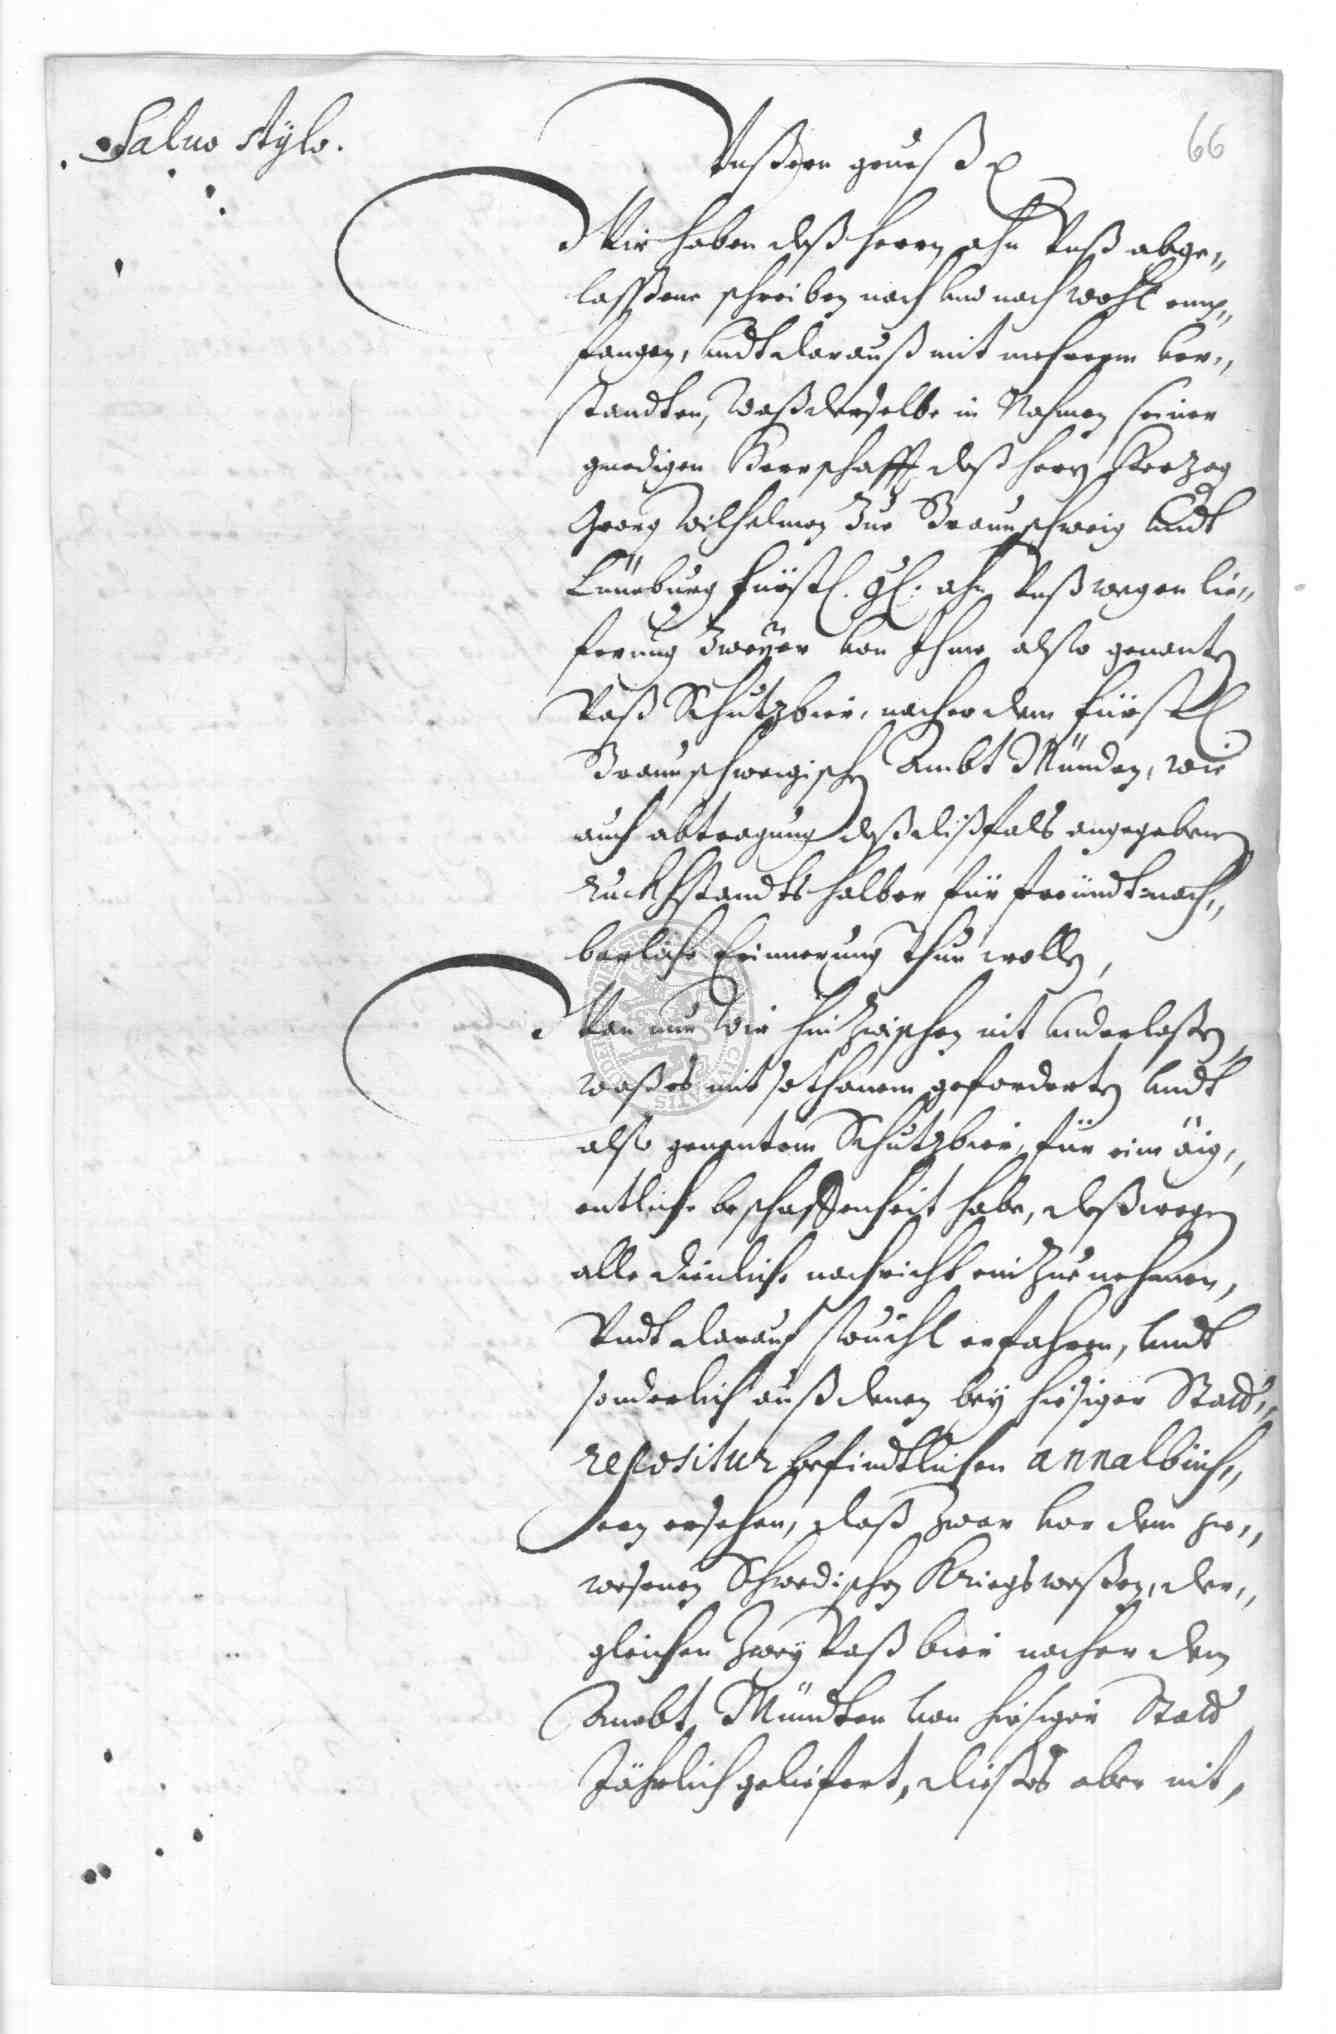 Saluo stylo.
66
Vnßern grueß p
Wir haben deß herrn ahn Vnß abge„
laßene schreiben nach vnd nach wohl emp„
fangen, vndt darauß mit mehrerem ver„
standten, waß derselbe in Nahmen seiner
gnedigen Herrschafft deß herrn Hertzog
Georg Wilhelmen Zue Braunschweig vndt
Lüneburg fürstl. gl. ahn Vnß wegen lie„
ferung Zweyer von Ihme also genanten
Vaß Schutzbier, nacher dem fürstl.
Braunschweigischen Ambt Münden, wie
auch abtragung deß dißfals angegebenen
ruckhstandts halber für freündtnach„
barliche Erinnerung thun wollen,
Wan nun Wir hinzwischen nit vnderlaßen,
waß es mit sothanem geforderten vndt
also genantem Schutzbier, für eine äig„
entliche beschaffenheit habe, deßwegen
alle dienliche nachricht einZunehmen,
Vndt darauf souihl erfahren, vndt
sonderlich auß denen bey hiesiger Stadt„
repositur befindtlichen annalbüch„
ern ersehen, daß zwar vor dem ge„
wesenen Schwedischen Kriegsweßen, der„
gleichen Zwey Vaß bier nacher dem
Ambt Mündten von hiesiger Stadt
Jährlich geliefert, dießes aber nit,